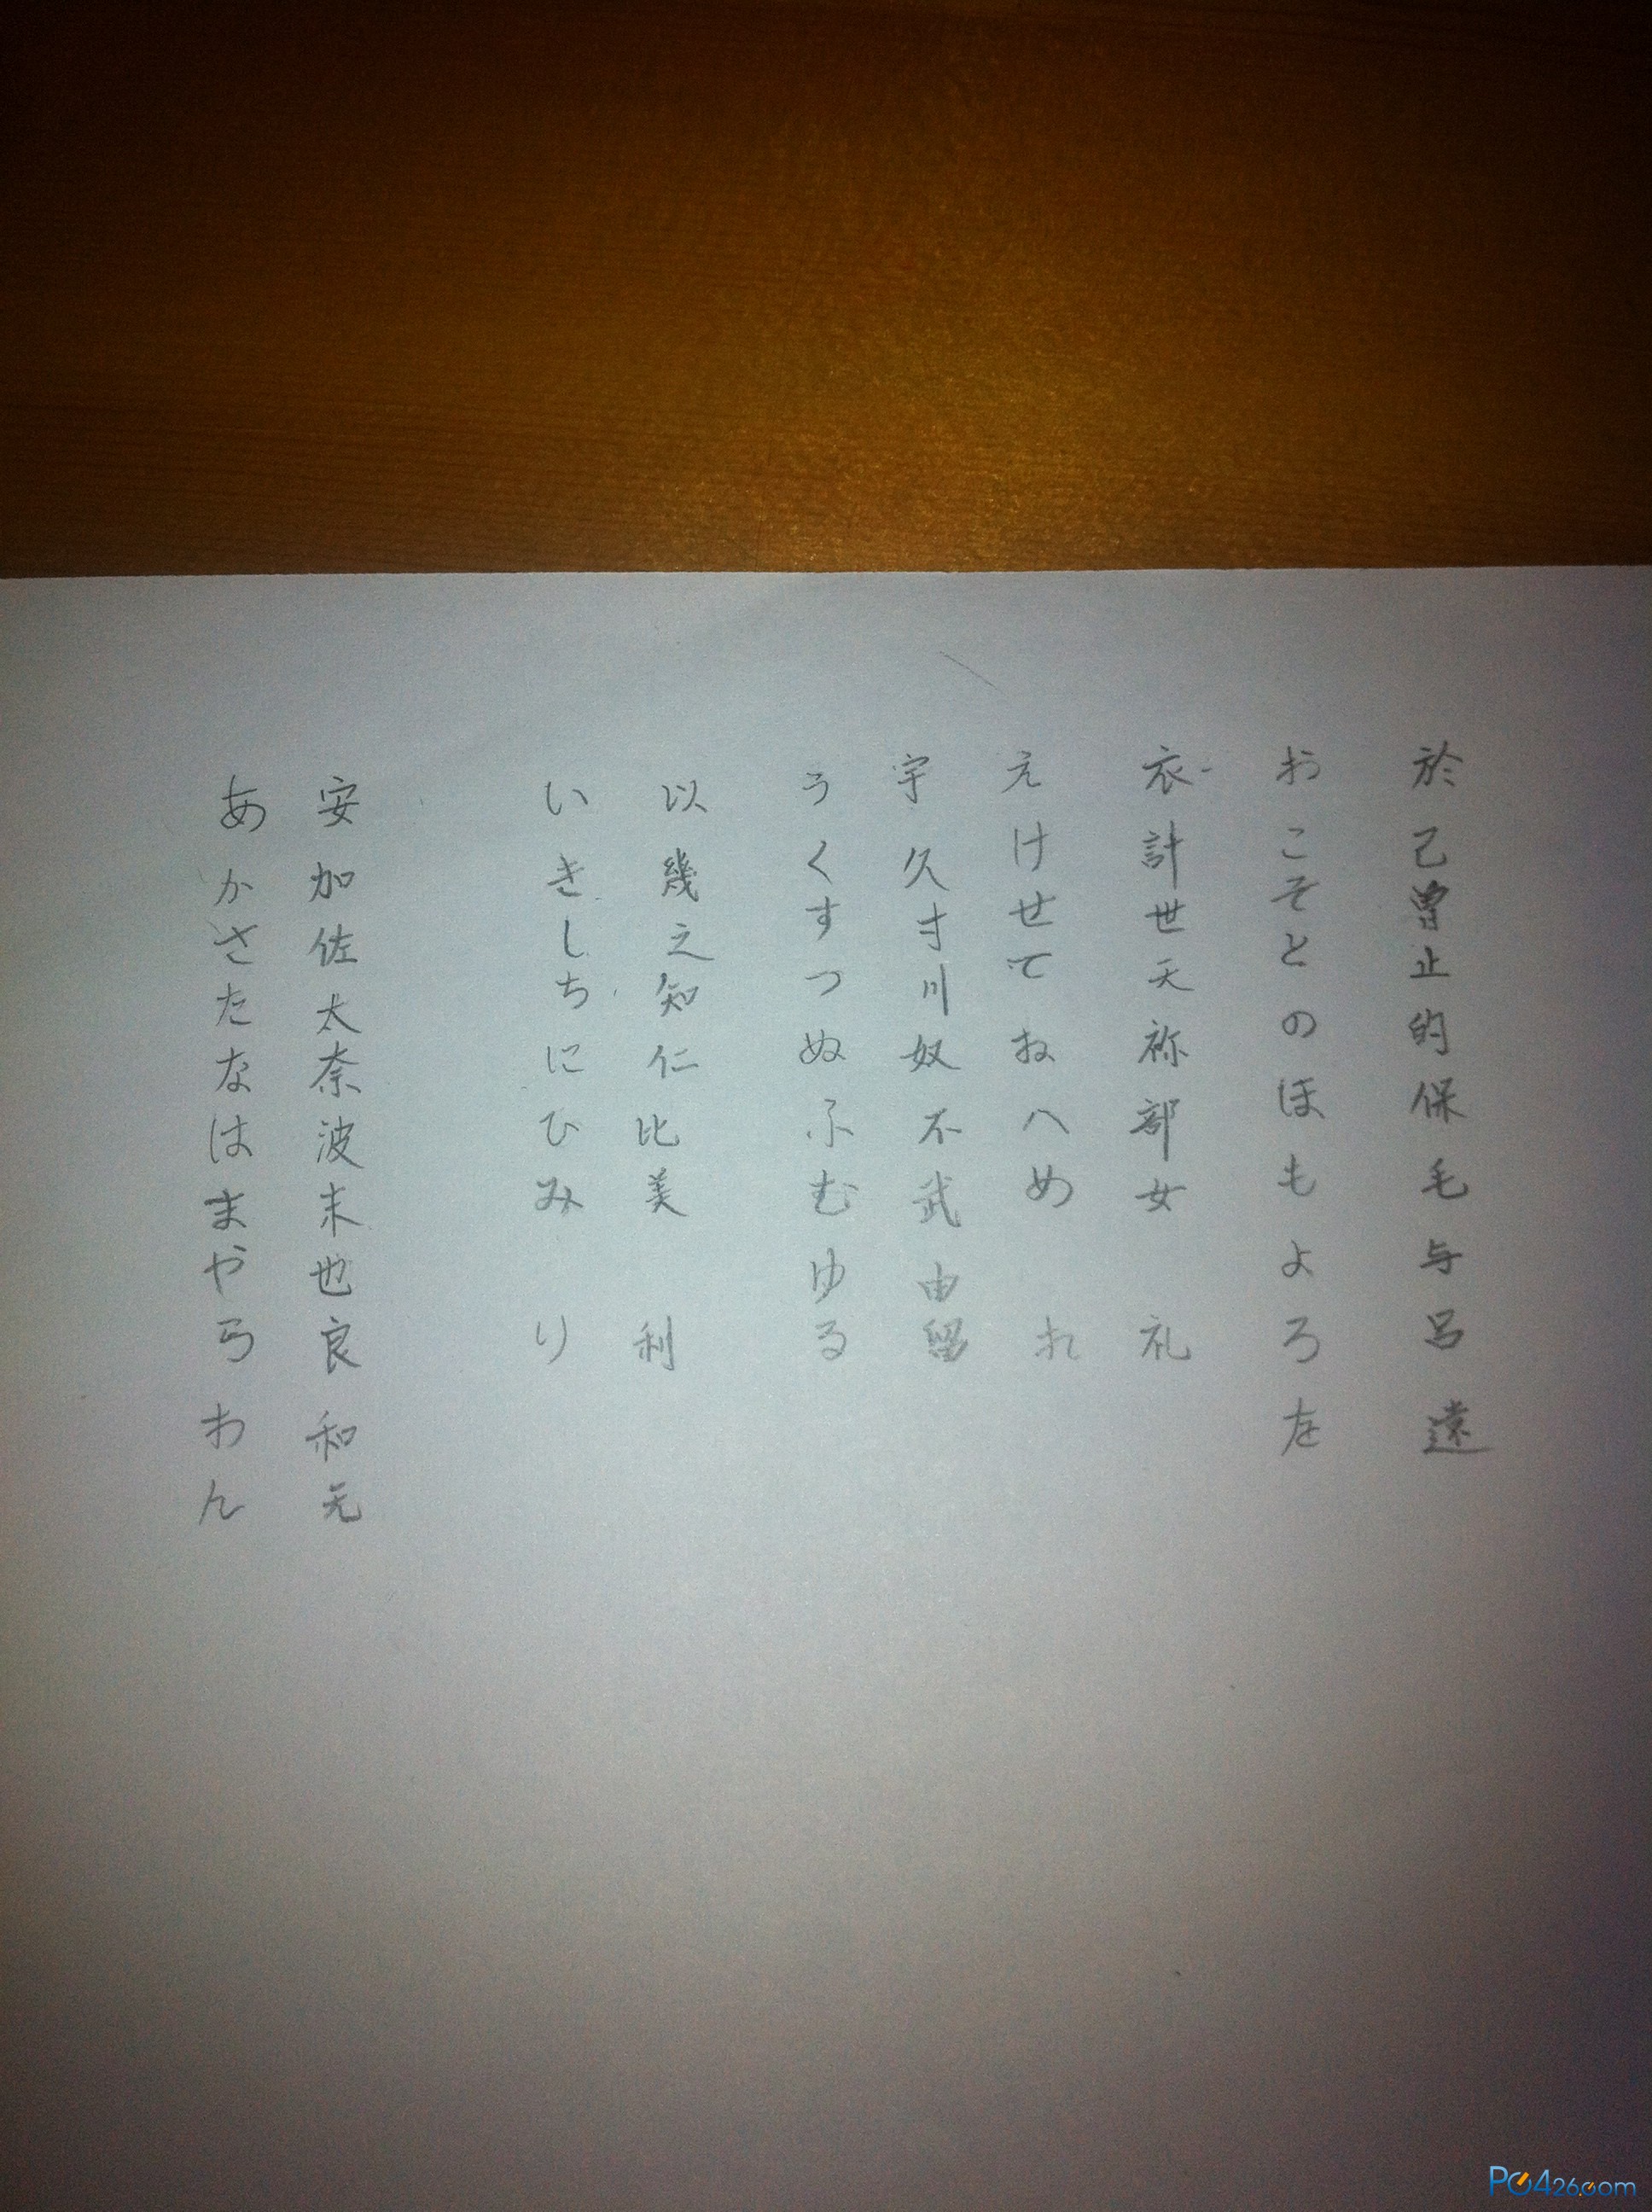 あかさたなはまやらわん
安加佐太奈波末也良和无
いきしちにひみ り
以幾之知仁比美 利
うくすつぬふむゆる
宇久寸川奴不武由留
えけせてねへめ れ
衣計世天祢部女 礼
おこそとのほもよろを
於己曽止的保毛与呂遠
PC426.com